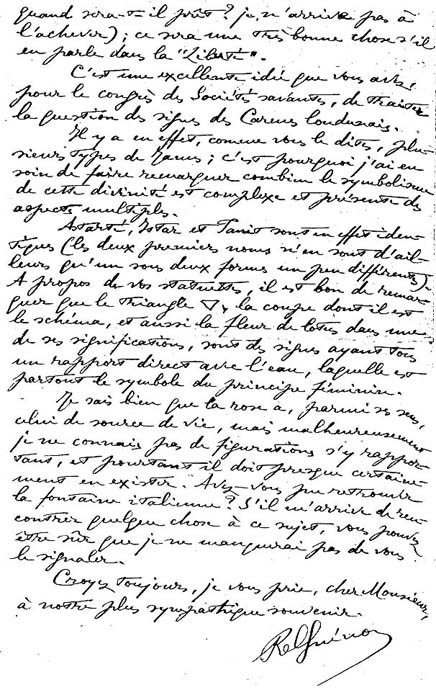 quand sera-t-il prêt ? je n'arrive pas à
l'achever) ; ce sera une très bonne chose s'il
en parle dans la "Liberté".
C'est une excellente idée que vous avez,
pour le congrès des Sociétés savantes, de traiter
la question des signes des Carmes loudunais.
Il y a en effet, comme vous le dites, plu-
sieurs types de Janus ; c'est pourquoi j'ai eu
soin de faire remarquer combien le symbolisme
de cette divinité est complexe et présente des
aspects multiples.
Astarté, Istar et Tanit sont en effet iden-
tiques (les deux premiers noms n'en sont d'ail-
leurs qu'un sous deux formes un peu différentes).
A propos de vos statuettes, il est bon de remar-
quer que le triangle ▽, la coupe dont il est
le schéma, et aussi la fleur de lotus dans une
de ses significations, sont des signes ayant tous
un rapport direct avec l'eau, laquelle est
partout le symbole du principe féminin.
Je sais bien que la rose a, parmi ses sens,
celui de source de vie, mais malheureusement
je ne connais pas de figurations s'y rappor-
tant, et pourtant il doit presque certaine-
ment en exister. Avez-vous pu retrouver
la fontaine italienne ? S'il m'arrive de ren-
contrer quelque chose à ce sujet, vous pouvez
être sûr que je ne manquerai pas de vous
le signaler.
Croyez toujours, je vous prie, cher Monsieur,
à notre plus sympathique souvenir.
René Guénon